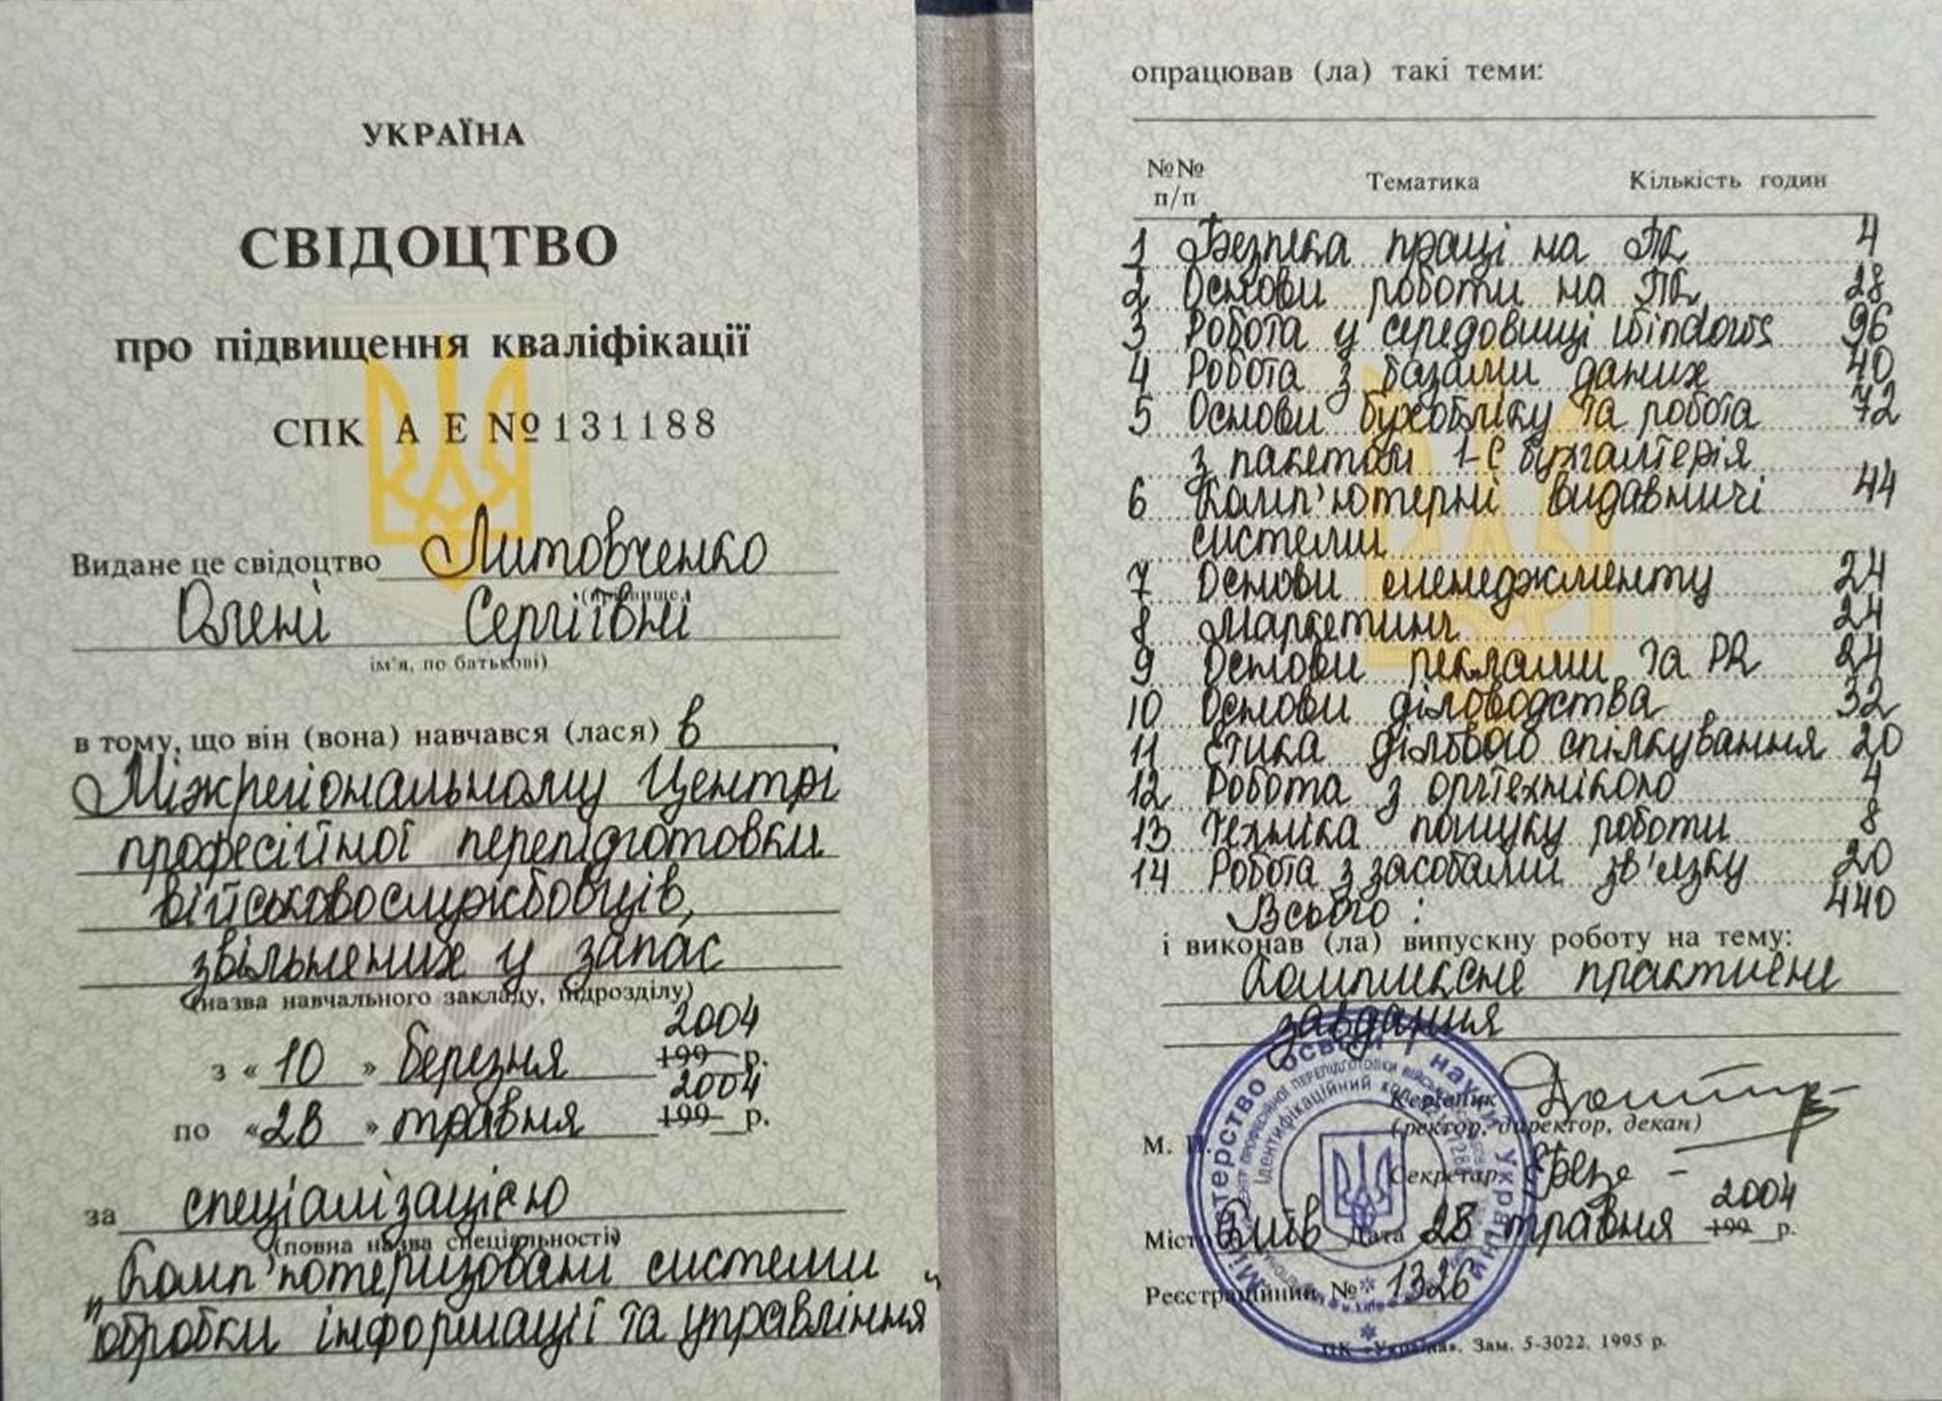 УКРАЇНА
СВІДОЦТВО
про підвищення кваліфікації
СПК АЕ №131188
Видане це свідоцтво Литовченко
(прізвище,
Олені Сергіївні
ім'я, по батькові)
в тому, що він (вона) навчався (лася) в
Міжрегіональному Центрі
професійної перепідготовки
військовослужбовців,
звільнених у запас
(назва навчального закладу, підрозділу)
2004
з «10» березня 199 р.
2004
по «28» травня 199 р.
за спеціалізацією
(повна назва спеціальності)
„Комп'ютеризовані системи
обробки інформації та управління"
опрацював (ла) такі теми:
№№ п/п Тематика Кількість годин
1 Безпека праці на ПК 4
2 Основи роботи на ПК 28
3 Робота у середовищі Windows 96
4 Робота з базами даних 40
5 Основи бухобліку та робота 72
з пакетом 1-С бухгалтерія
6 Комп'ютерні видавничі 44
системи
7 Основи менеджменту 24
8 Маркетинг 24
9 Основи реклами та PR 24
10 Основи діловодства 32
11 Етика ділового спілкування 20
12 Робота з оргтехнікою 4
13 Техніка пошуку роботи 8
14 Робота з засобами зв'язку 20
Всього: 440
і виконав (ла) випускну роботу на тему:
Комплексне практичне
завдання
Керівник
(ректор, директор, декан)
М. П.
Секретар
2004
Місто Київ Дата 28 травня 199 р.
Реєстраційний № 1326
ПК «Україна». Зам. 5-3022, 1995 р.
Міністерство освіти і науки України
Ідентифікаційний код